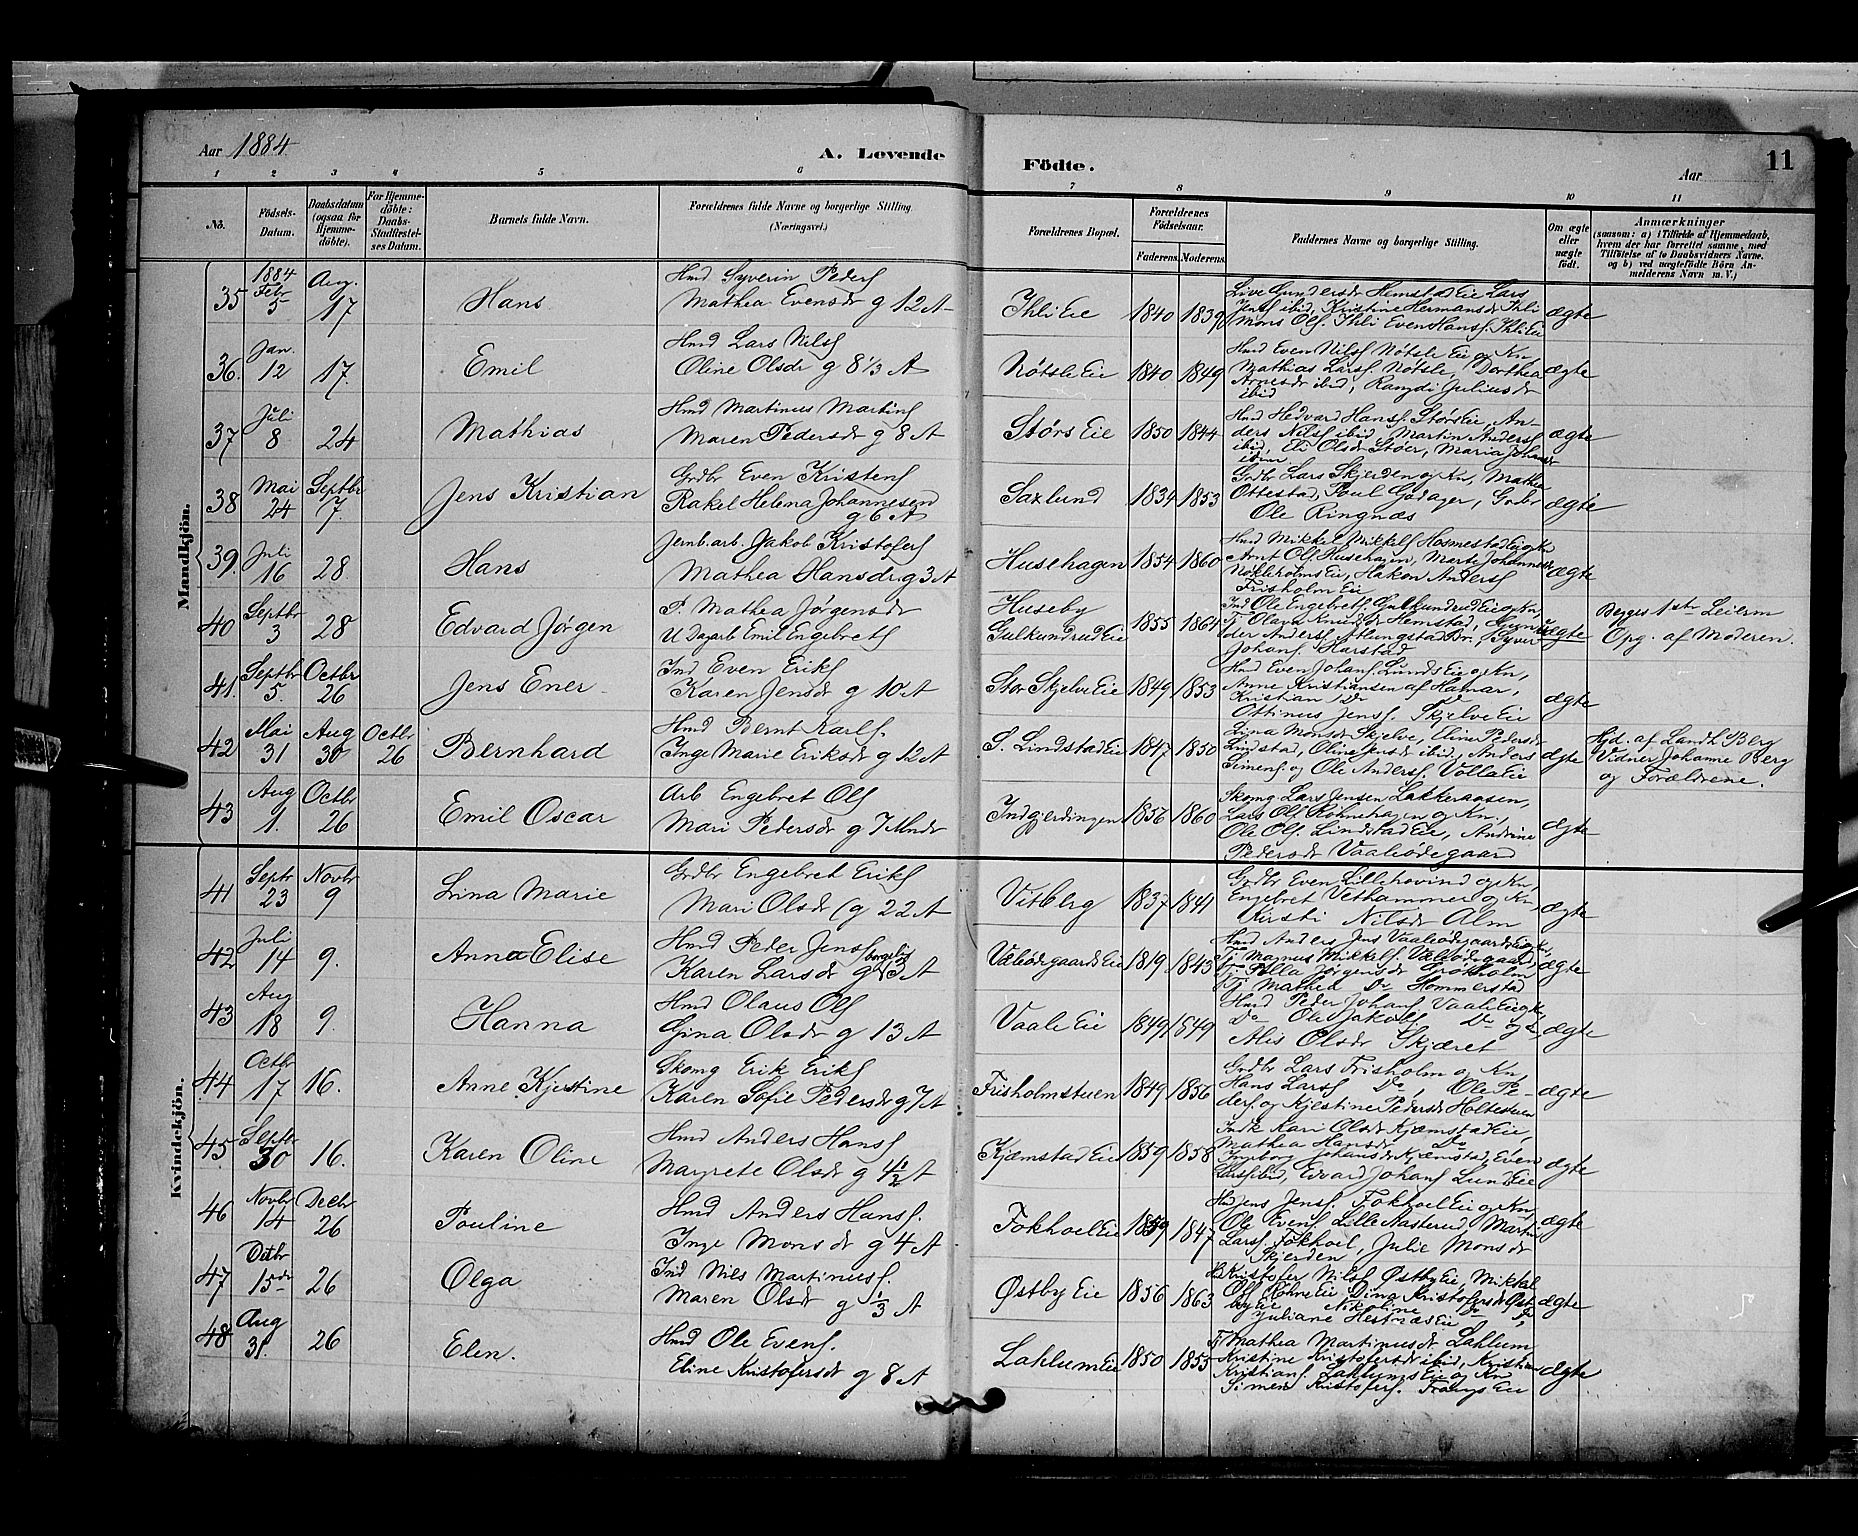 Aar 1884
A. Levende
Födte.
Aar
11
1 2 3 4 5 6 7 8 9 10 11
Nô.
Födsels-
Datum.
Daabsdatum
(ogsaa for
Hjemme-
döbte).
For Hjemme-
döbte:
Daabs-
Stadfæstel-
ses Datum.
Barnets fulde Navn.
Forældrenes fulde Navne og borgerlige Stilling.
(Næringsvei.)
Forældrenes Bopæl.
Forældrenes
Fødselsaar.
Faderens. Moderens.
Faddernes Navne og borgerlige Stilling.
Om ægte
eller
uægte
födt.
Anmærkninger
(saasom: a) i Tilfælde af Hjemmedaab,
hvem der har forrettet samme, med
Tilföielse af to Daabsvidners Navne,
og b) ved uægtefödte Börn An-
melderens Navn m. V.)
Mandkjön.
35 1884 Febr 5 Aug. 17 Hans
Hmd Syverin Peders
Mathea Evensdr g 12 A
Ihli Eie 1840 1839
Live Gundersdr Hemstad Eie Lars
Jens ibid, Kristine Hermansdr Ihli
Mons Ols. Ihli Even Hans. Ihli Eie
ægte
36. Jan. 12 17. Emil
Hmd Lars Nils
Oline Olsdr g 8 1/3 A
Nøtsle Eie 1840 1849
Hmd Even Nils Nøtsle Eie og Kn,
Mathias Lars Nøtsle, Dorthea
Arnesdr ibid, Rangdi Juliusdr
ibid
ægte
37 Juli 8 24 Mathias
Hmd Martinus Martins
Maren Pedersdr g 8 A
Størs Eie 1850 1844
Hmd Hedvard Hans. Størs Eie, An-
ders Nils ibid, Martin Anders
ibid, Eli Olsdr Støer, Maria Johansdr
ibim
ægte
38 Mai 24 Septbr 7. Jens Kristian
Grdbr Even Kristens
Rakel Helena Johannesen
g 6 A
Saxlund 1834 1853
Grdbr Lars Skjerden og Kn, Mathea
Ottestad, Poul Godager, Grdbr
Ole Ringnæs
ægte
39. Juli 16 28 Hans
Jernb.arb. Jakob Kristofers
Mathea Hansdr. g 3 A
Husehagen 1854 1860
Hmd Mikkel Mikkels Hosmestad Eie og Kn
Arnt Ols Husehagen, Marte Johannesdr
Nøkleholms Eie, Hakon Anders
Frisholm Eie
ægte
40 Septbr 3 28 Edvard Jørgen
P. Mathea Jørgensdr
U Dagarb Emil Engebrets
Huseby
Gulkundrud Eie 1855 1864
Ind Ole Engebrets. Gulkundrud Eie og Kn,
Tj Olava Knudsdr Hemstad, Gun-
der Anders. Atlungstad Br. Syver
Johans. Harstad
uægte
Begges 1ste Leierm
Opg. af Moderen.
41. Septbr 5. Octbr 26 Jens Ener
Ind Even Eriks
Karen Jensdr g 10 A
Stor Skjelve Eie 1849 1853
Hmd Even Johans. Lunds Eie og Kn,
Anne Kristiansen af Hamar,
Kristian Do Do
Ottinus Jens. Skjelve Eie
ægte
42 Mai 31 Aug 30 Octbr 26 Bernhard
Hmd Bernt Karls.
Inge Marie Eriksdr g 12 A
S. Lindstad Eie 1847 1850
Lina Monsdr Skjelve, Oline Pedersdr
Lindstad, Oline Jensdr ibid, Anders
Simens. og Ole Anders. Volla Eie
ægte
Hjd. af Landh. Berg
Vidner Johanne Berg
og Forældrene.
43 Aug 1. Octbr 26 Emil Oscar
Arb Engebret Ols
Mari Pedersdr g 7 Mndr
Indgjerdingen 1856 1860
Skomg Lars Jensen Lakkeraasen,
Lars Ols Röhnehagen og Kn,
Ole Ols. Lindstad Eie, Andrine
Pedersdr Vaaleødegaard
ægte
Kvindekjön.
41 Septr 23 Novbr 9 Lina Marie
Grdbr Engebret Eriks
Mari Olsdr (g 22 A
Vitberg 1837 1841
Grdbr Even Lillehovind og Kn,
Engebret Vethammer og Kn,
Kirsti Nilsdr Alm
ægte
42 Juli 14 9. Anna Elise
Hmd Peder Jens borgelig
Karen Larsdr g 13 A
Valiødegaards Eie 1819 1843
Hmd Anders Jens Vaaleødegaards Eie og Kn,
Tj Magnus Mikkels. Valiødegaard,
Tj Pella Jørgensdr Løkholm
Tj Mathea Do Hommerstad
ægte
43 Aug 18 9. Hanna
Hmd Olaus Ols
Gina Olsdr g 13 A
Vaale Eie 1849 1849
Hmd Peder Johans Vaale Eie og Kn
Do Ole Jakobs Do og Do
Alis Olsdr Skjæret
ægte
44 Octbr 17 16. Anne Kjestine
Skomg Erik Eriks
Karen Sofie Pedersdr g 7 A
Frisholmstuen 1849 1856
Grdbr Lars Frisholm og Kn,
Hans Lars Do, Ole Pe-
ders. og Kjestine Pedersdr Holtesteren
ægte
45. Septbr 30 16. Karen Oline
Hmd Anders Hans
Margrete Olsdr g 4 1/2 A
Kjæmstad Eie 1859 1858
Indk Kari Olsdr Kjæmstad Eie,
Mathea Hansdr Do
Ingeborg Johansdr Kjæmstad, Even
Lars ibid, Edvard Johans Lund Eie
ægte
46 Novbr 14 Decbr 26 Pouline
Hmd Anders Hans.
Inge Monsdr g 4 A
Fokhoel Eie 1859 1847
Hmd Jens Jens. Fokhoel Eie og Kn,
Ole Evens. Lille Nasterud, Martin
Lars. Fokhoel, Julie Monsdr
Skjerden
ægte
47 Octbr 15de 26 Olga
Ind Nils Martinus.
Maren Olsdr g 1/3 A
Østby Eie 1856 1863
Hmd Kristofer Nils Østby Eie, Mikkel
Ols Röhne Eie Dina Kristofersdr Øst-
by Eie Nikoline Do
Juliane Hestnæs Eie
ægte
48 Aug 31. 26 Elen.
Hmd Ole Evens.
Eline Kristofersdr g 8 A
Lahlum Eie 1850 1855
Tj Mathea Martinusdr Lahlum
Kristine Kristofersdr ibid, Kristian
Kristians. Lahlums Eie og Kn
Simen Kristofers. Frangs Eie
ægte